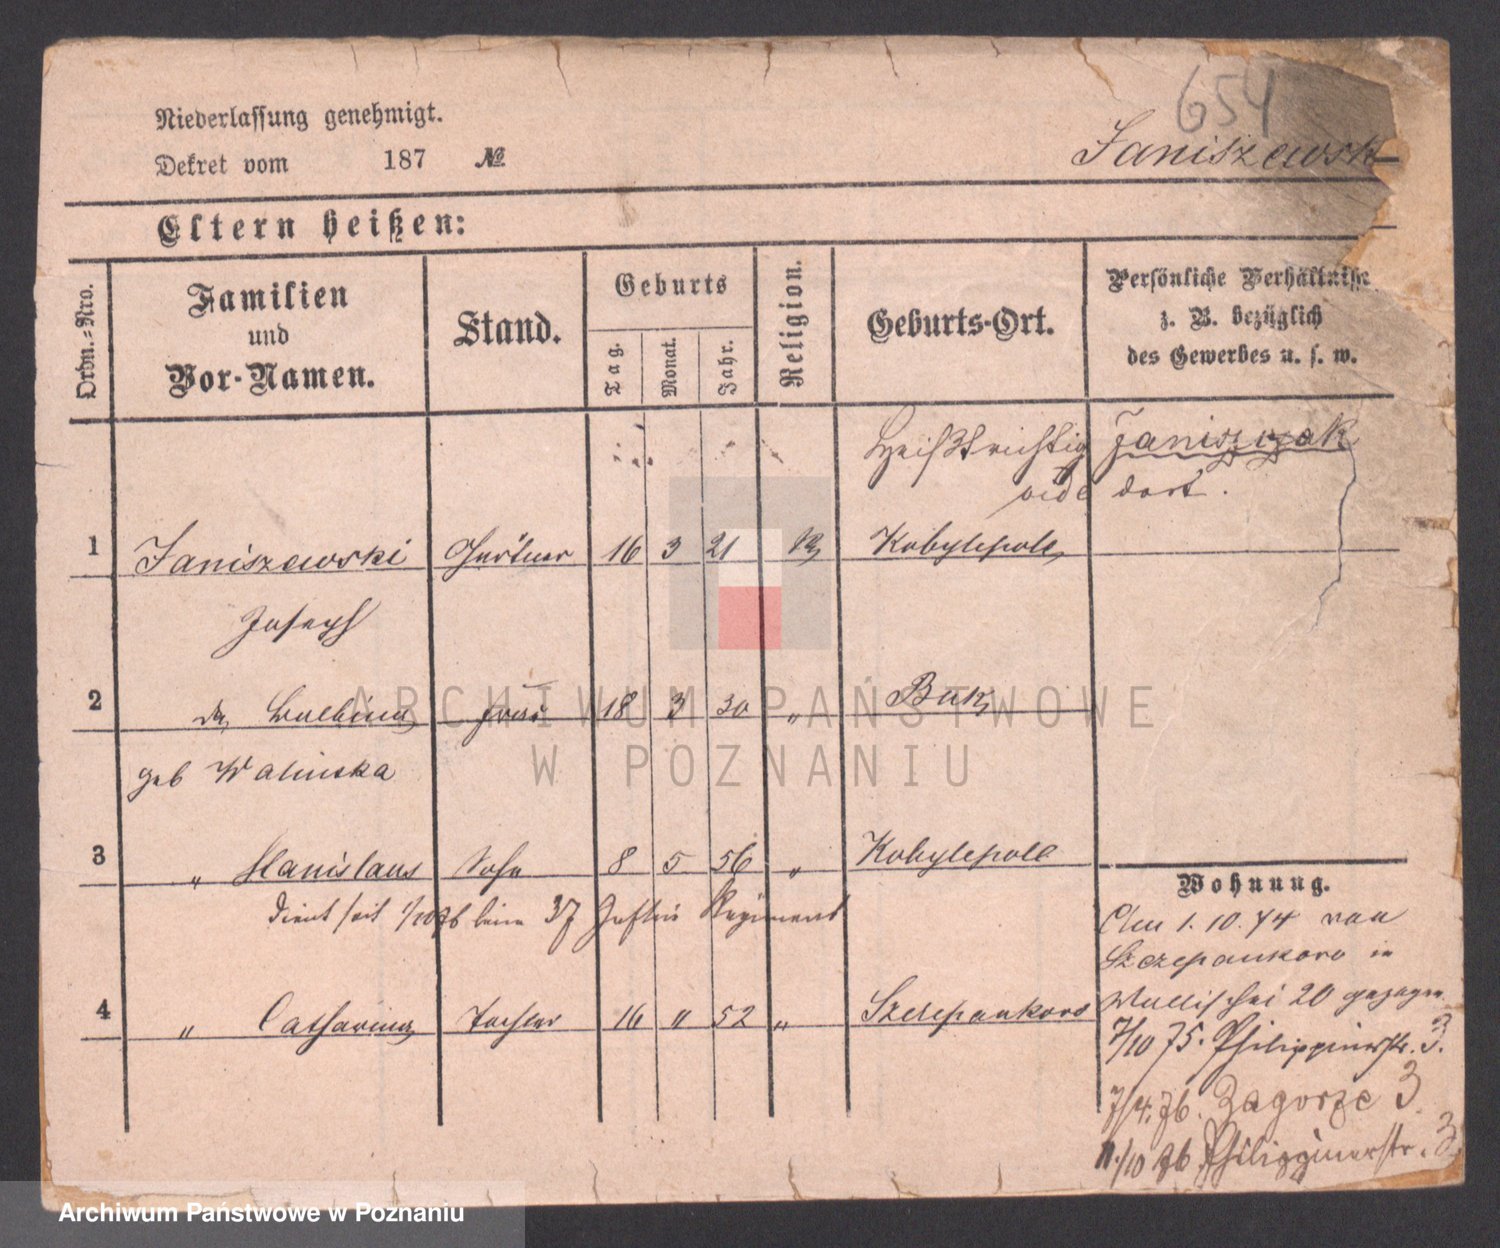 654
Niederlassung genehmigt.
Dekret vom 187 №
Janiszewsk
Eltern heißen:
Ordn.-Nro.
Familien
und
Vor-Namen.
Stand.
Geburts
Tag.
Monat.
Jahr.
Religion.
Geburts-Ort.
Persönliche Verhältnisse
z. B. bezüglich
des Gewerbes u. s. w.
Heißt richtig Janiszczak
vide dort.
1 Janiszewski Gärtner 16 3 21 K Kobylepole
Joseph
2 do Balbina Frau 18 3 30 " Buk
geb Walinska
3 " Stanislaus Sohn 8 5 56 " Kobylepole
dient seit 1/10 76 beim 37 Inftrie Regiment
4 " Catharina Tochter 16 " 52 " Szczepankowo
Wohnung.
Am 1. 10. 74 von
Szczepankowo in
Wallischei 20 gezogen
7/10 75. Philippinerstr. 3.
7/4. 76. Zagorze 3.
11./10 76 Philippinerstr. 3
ARCHIWUM PAŃSTWOWE
W POZNANIU
Archiwum Państwowe w Poznaniu